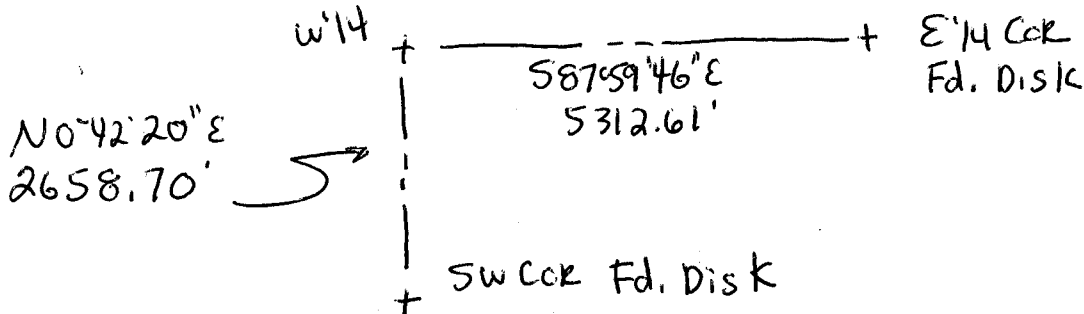 W 1/4
E 1/4 COR
Fd. Disk
S87°59'46"E
5312.61'
N0°42'20"E
2658.70'
SW COR Fd. Disk